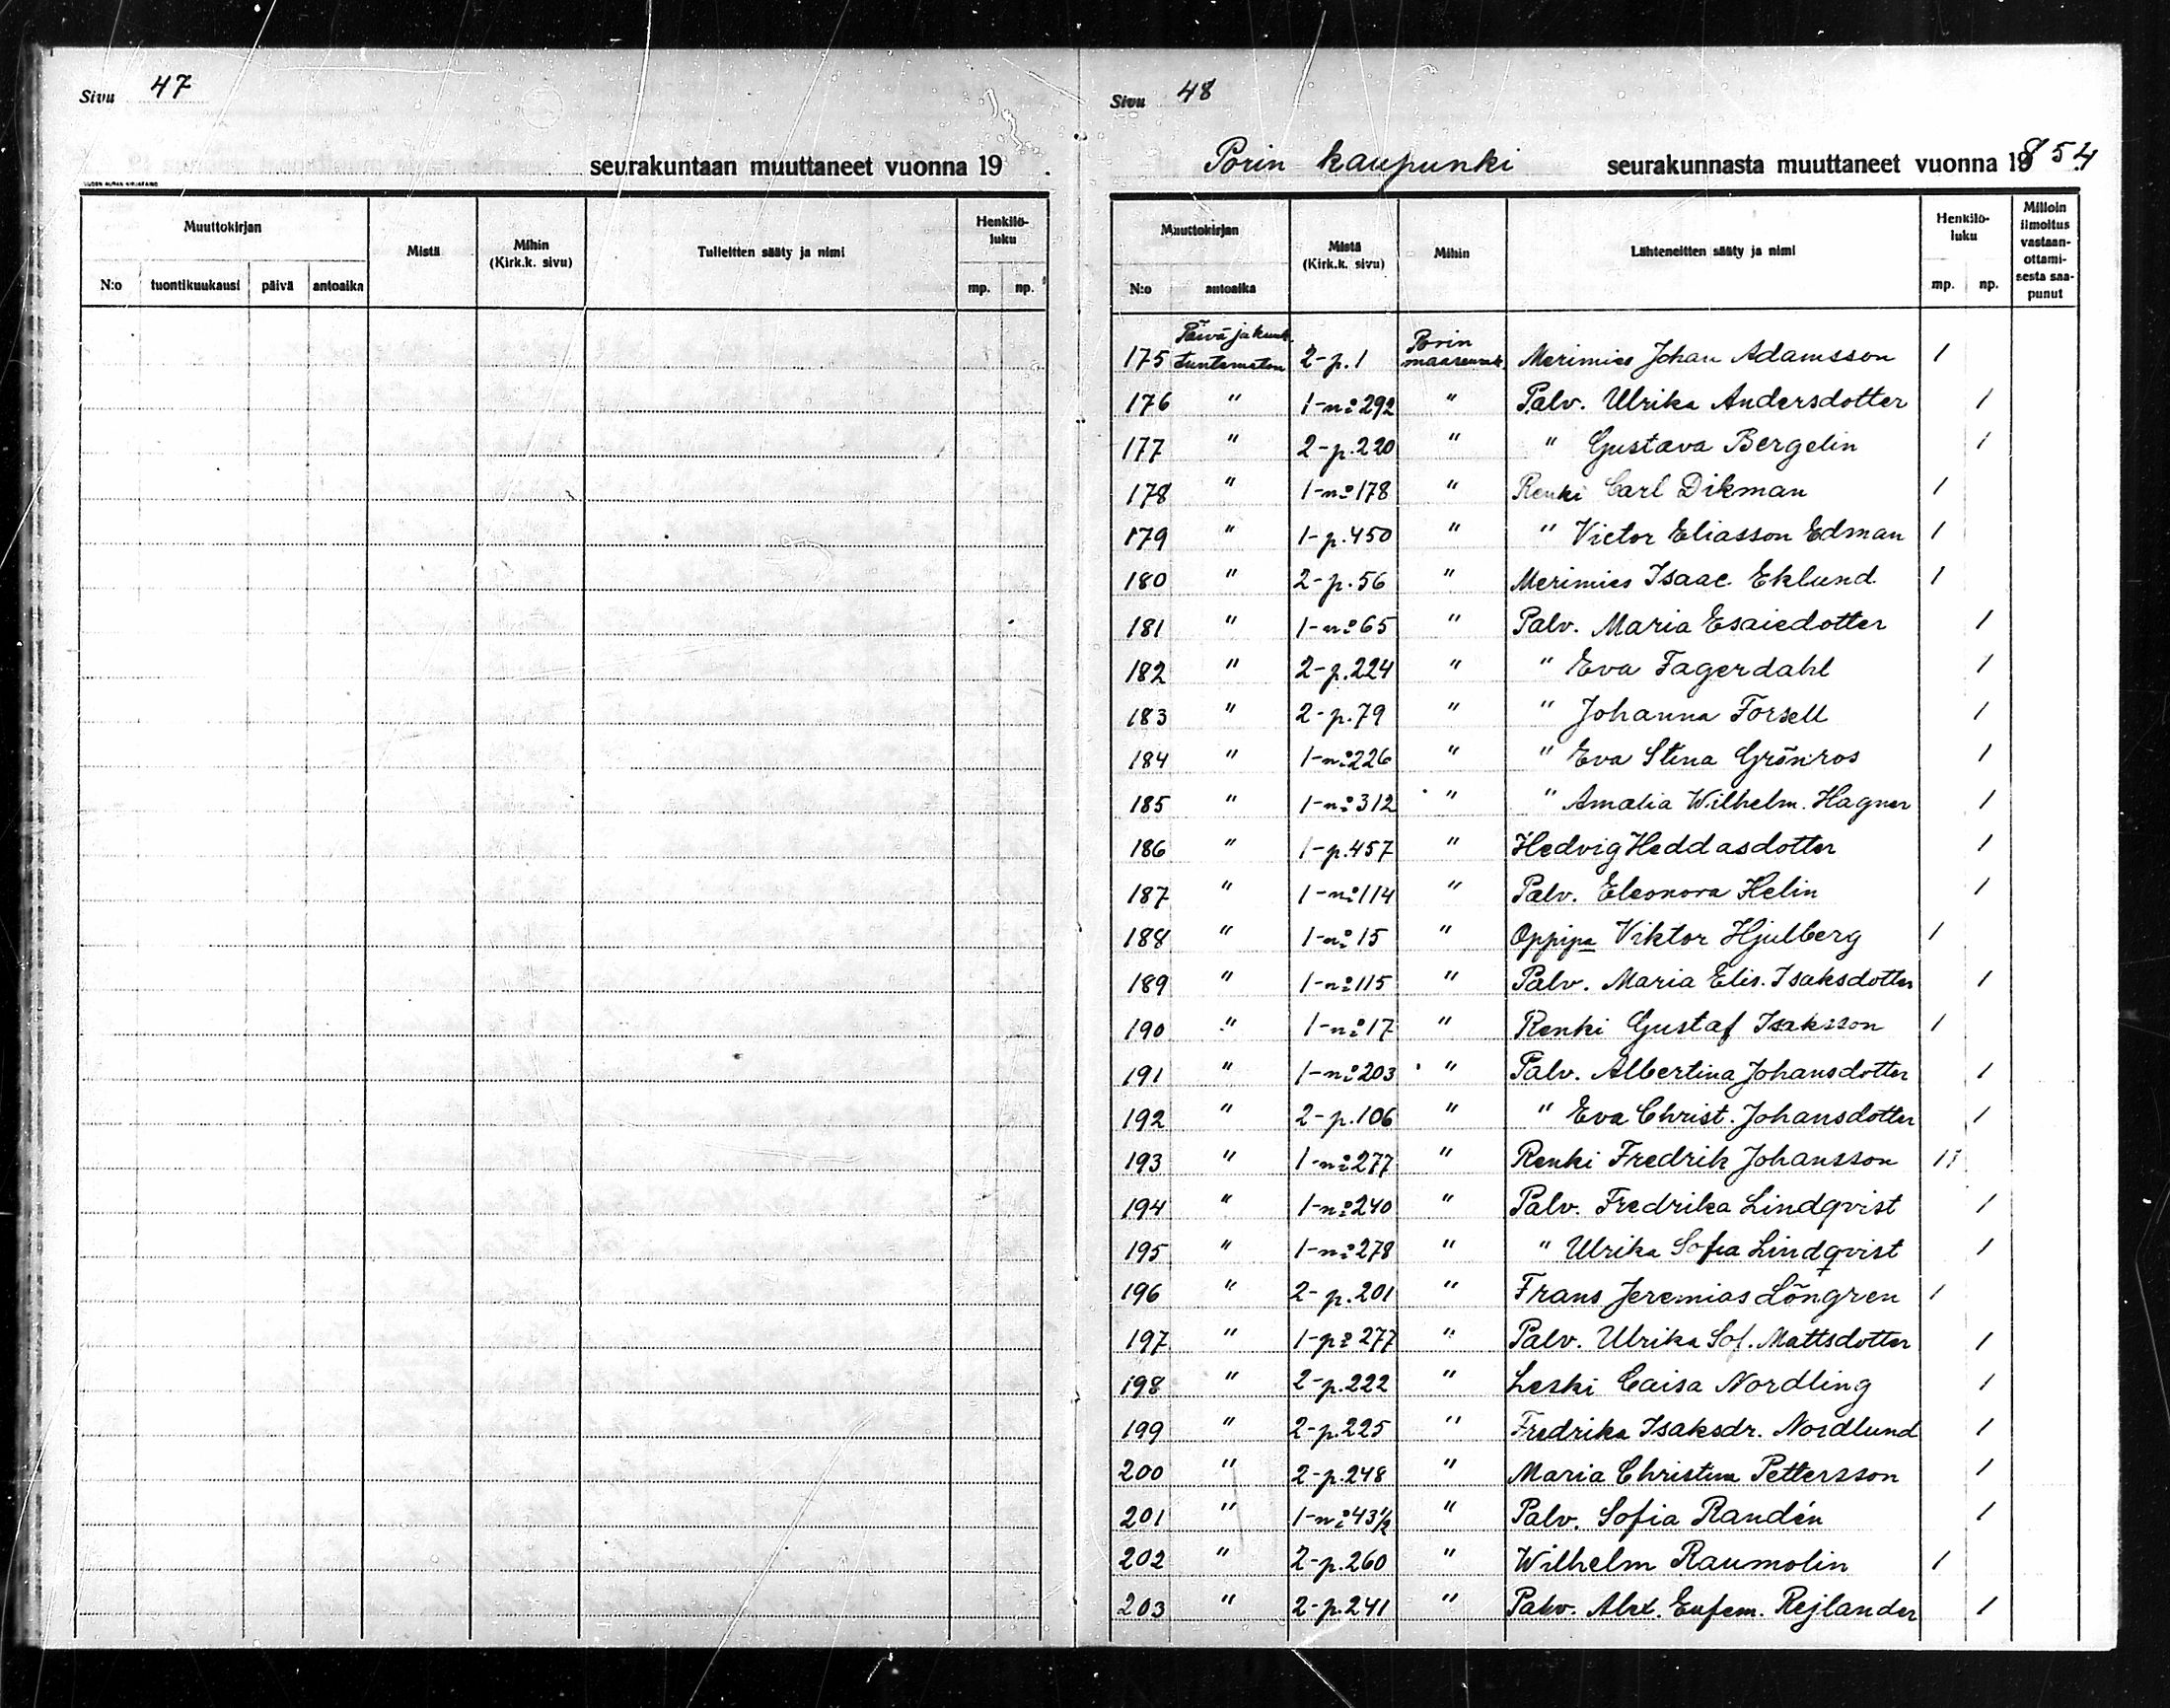 Sivu 47
seurakuntaan muuttaneet vuonna 19
Muuttokirjan | Mistä | Mihin (Kirk.k. sivu) | Tulleitten sääty ja nimi | Henkilö-luku
N:o | tuontikuukausi | päivä | antoaika | mp. | np.
Sivu 48
Porin kaupunki seurakunnasta muuttaneet vuonna 1854
Muuttokirjan | Mistä (Kirk.k. sivu) | Mihin | Lähteneitten sääty ja nimi | Henkilö-luku | Milloin ilmoitus vastaan-ottami-sesta saa-punut
N:o | antoaika | mp. | np.
175 Päivä ja kuuk. tuntematon 2-p.1 Porin maaseurak. Merimies Johan Adamsson 1
176 " 1-n:o 292 " Palv. Ulrika Andersdotter 1
177 " 2-p.220 " " Gustava Bergelin 1
178 " 1-n:o 178 " Renki Carl Dikman 1
179 " 1-p.450 " " Victor Eliasson Edman 1
180 " 2-p.56 " Merimies Isaac Eklund 1
181 " 1-n:o 65 " Palv. Maria Esaiedotter 1
182 " 2-p.224 " " Eva Fagerdahl 1
183 " 2-p.79 " " Johanna Forsell 1
184 " 1-n:o 226 " " Eva Stina Grönros 1
185 " 1-n:o 312 " " Amalia Wilhelm. Hagner 1
186 " 1-p.457 " Hedvig Heddasdotter 1
187 " 1-n:o 114 " Palv. Eleonora Helin 1
188 " 1-n:o 15 " Oppipa Viktor Hjulberg 1
189 " 1-n:o 115 " Palv. Maria Elis. Isaksdotter 1
190 " 1-n:o 17 " Renki Gustaf Isaksson 1
191 " 1-n:o 203 " Palv. Albertina Johansdotter 1
192 " 2-p.106 " " Eva Christ. Johansdotter 1
193 " 1-n:o 277 " Renki Fredrik Johansson 1
194 " 1-n:o 240 " Palv. Fredrika Lindqvist 1
195 " 1-n:o 278 " " Ulrika Sofia Lindqvist 1
196 " 2-p.201 " Frans Jeremias Löngren 1
197 " 1-p: 277 " Palv. Ulrika Sof. Mattsdotter 1
198 " 2-p.222 " Leski Caisa Nordling 1
199 " 2-p.225 " Fredrika Isaksdr. Nordlund 1
200 " 2-p.248 " Maria Christina Pettersson 1
201 " 1-n:o 43 1/2 " Palv. Sofia Randén 1
202 " 2-p.260 " Wilhelm Raumolin 1
203 " 2-p.241 " Palv. Alex. Eufem. Rejlander 1